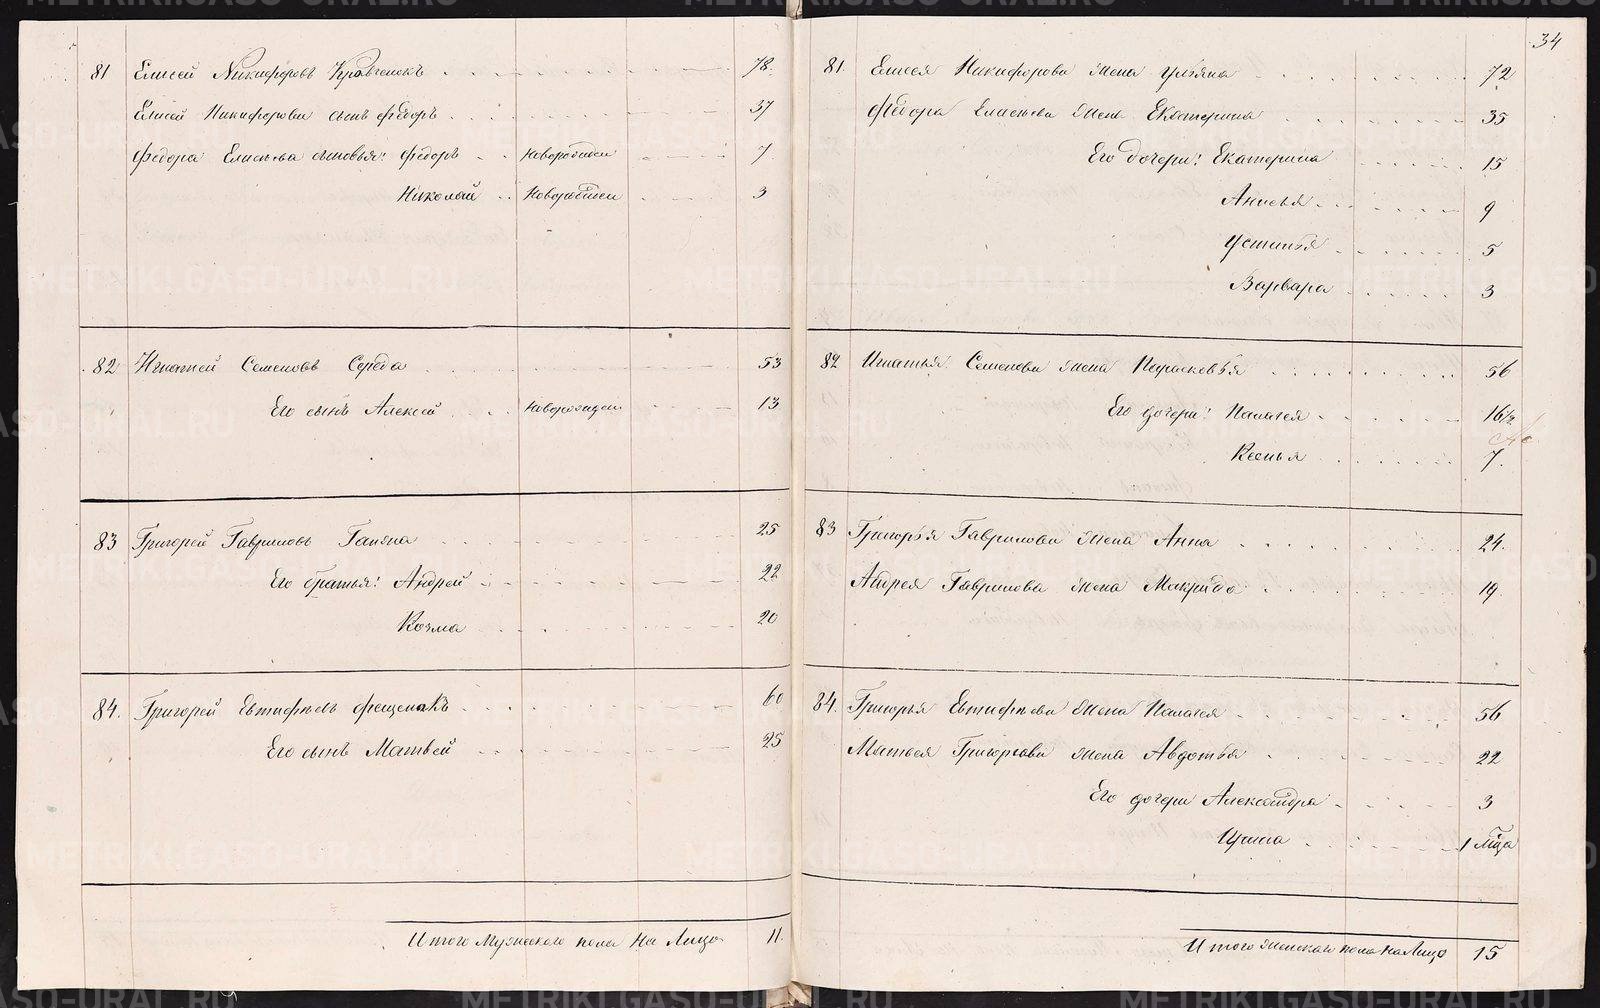 34
81 Елисей Никифоровъ Кравченокъ 78.
Елисей Никифорова сынъ Федоръ 37
Федора Елисѣева сыновья: Федоръ новорожден 7
Николай новорожден 3
82 Игнатей Семеновъ Середа 53
Его сынъ Алексей новорожден 13
83 Григорей Гавриловъ Гапяна 25
Его братья: Андрей 22
Козма 20
84. Григорей Евтифѣевъ Фещенокъ 60
Его сынъ Матвей 25
Итого Мужескаго пола на Лицо 11.
81. Елисея Никифорова жена Ульяна 72
Федора Елисѣева жена Екатерина 35
Его дочери: Екатерина 15
Анисья 9
Устинья 5
Варвара 3
82 Игнатья Семенова жена Парасковья 56
Его дочери: Палагея 16½
Ксенья 7.
83 Григорья Гаврилова жена Анна 24.
Андрея Гаврилова жена Макрида 19.
84. Григорья Евтифѣева жена Палагея 56
Матвея Григорьева жена Авдотья 22
Его дочери Александра 3
Ирина 1 м͠ца
Итого женскаго пола на Лицо 15
METRIKI.GASO-URAL.RU